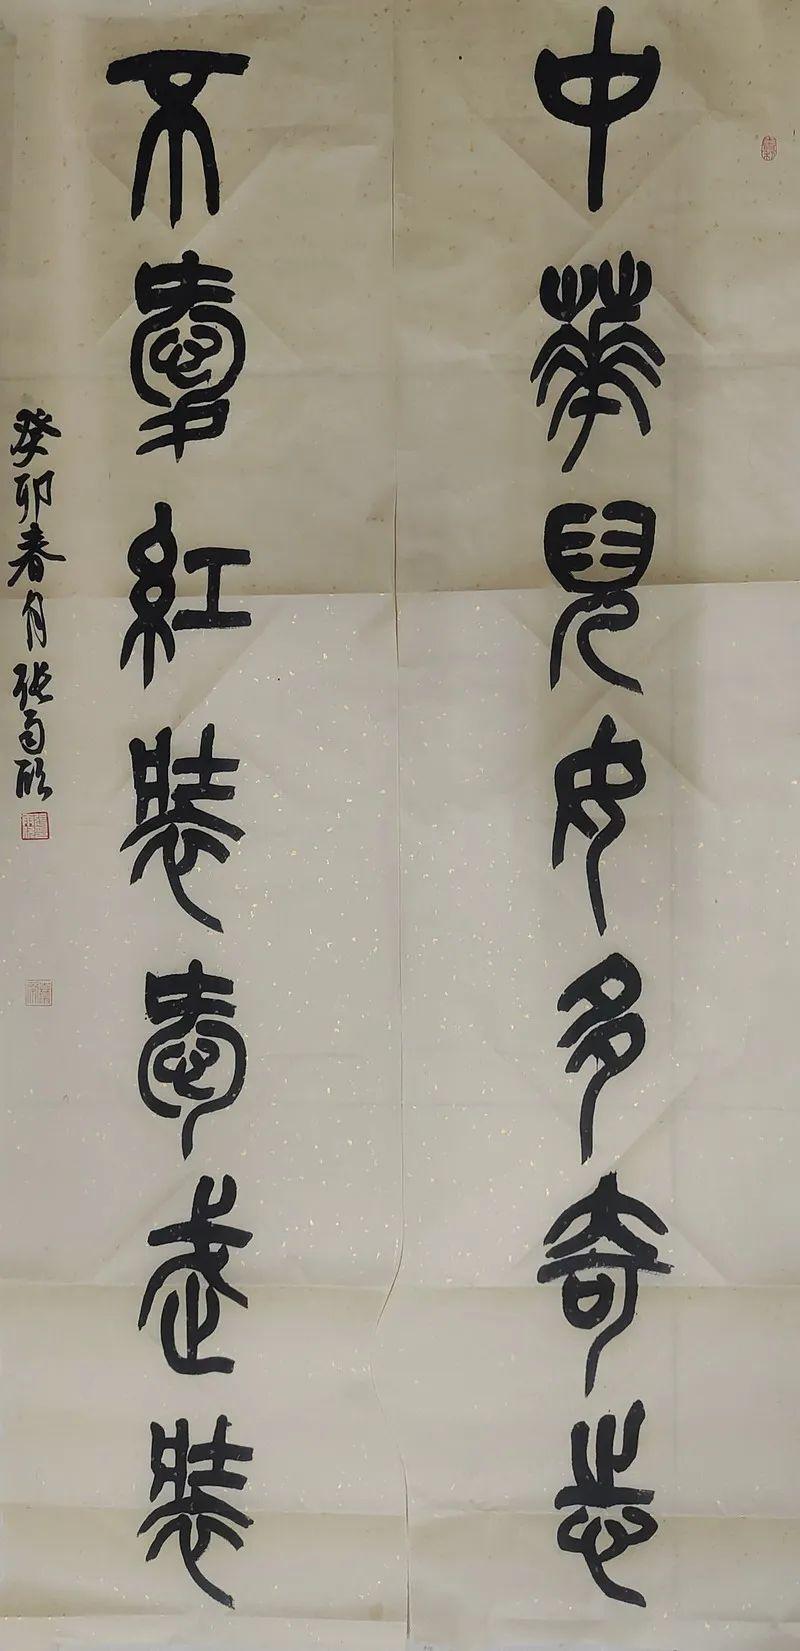 中華兒女多奇志
不愛紅裝愛武裝
癸卯春月張雨欣